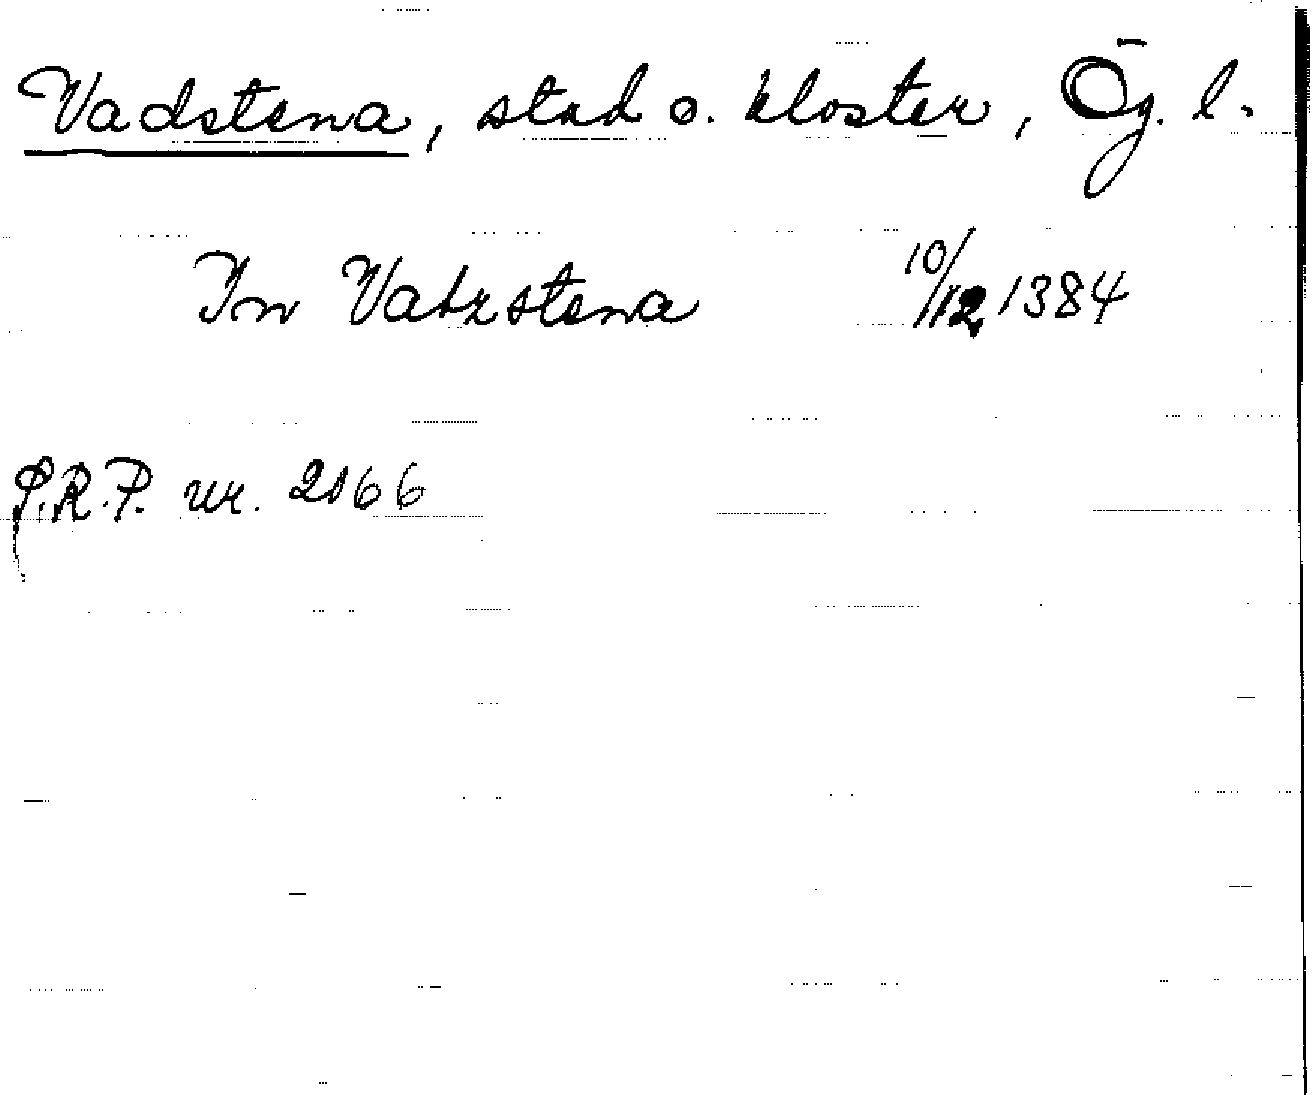 Vadstena, stad o. kloster, Ög. l.
In Vatzstena 10/12 1384
P.R.P. nr. 2166